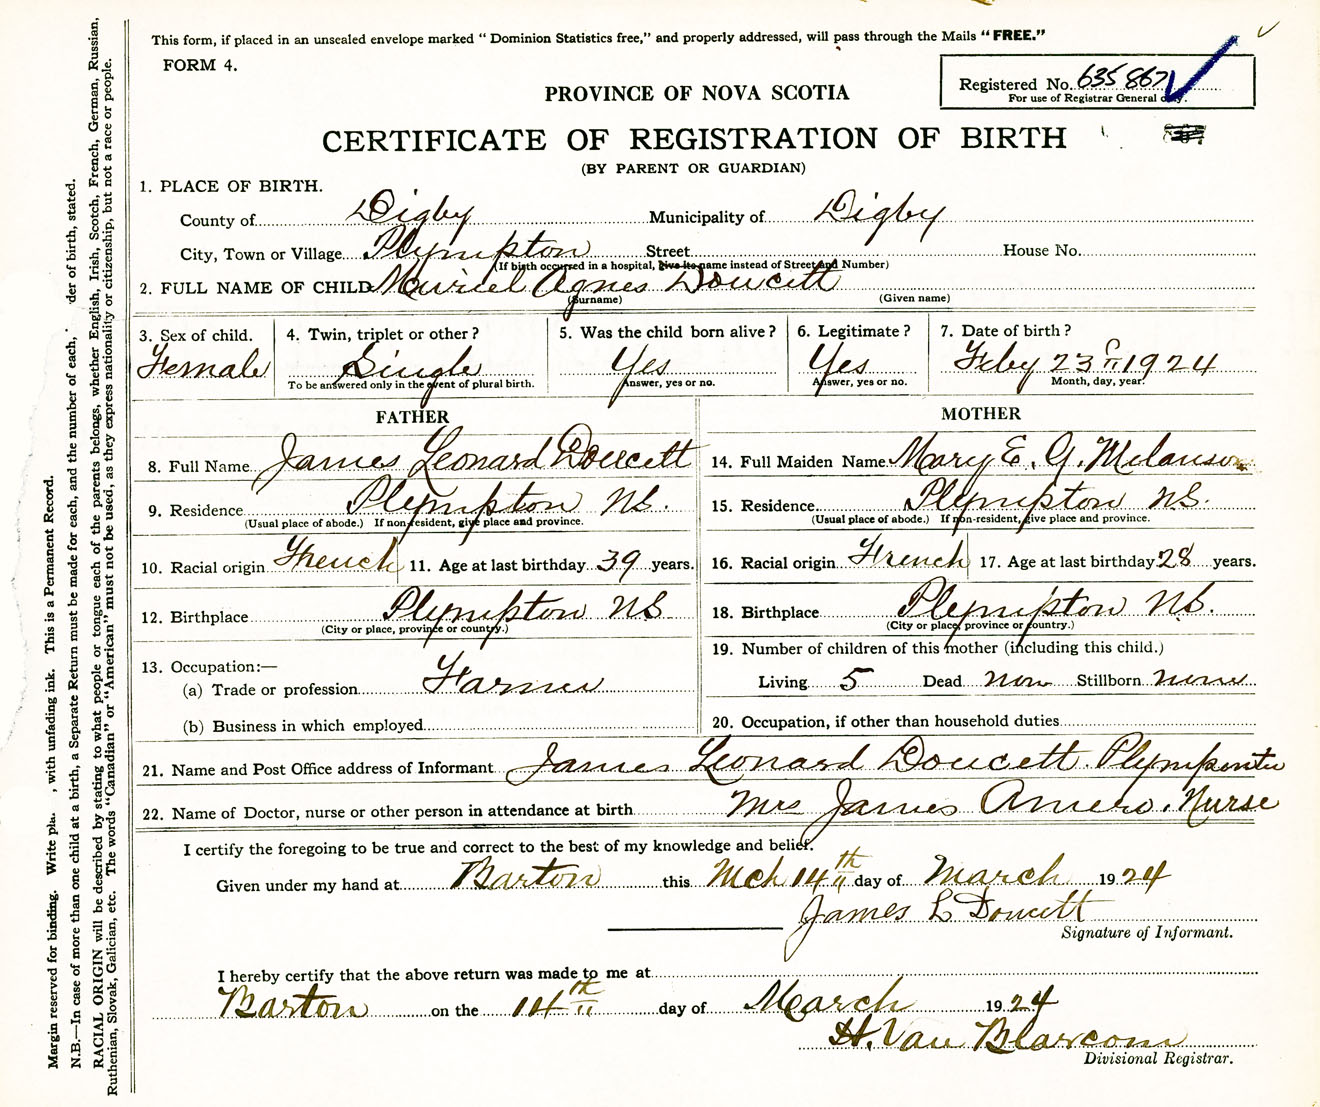 This form, if placed in an unsealed envelope marked " Dominion Statistics free," and properly addressed, will pass through the Mails "FREE."
FORM 4.
Registered No. 635 867
For use of Registrar General only.
PROVINCE OF NOVA SCOTIA
CERTIFICATE OF REGISTRATION OF BIRTH
(BY PARENT OR GUARDIAN)
1. PLACE OF BIRTH.
County of Digby Municipality of Digby
City, Town or Village Plympton Street House No.
(If birth occurred in a hospital, give its name instead of Street and Number)
2. FULL NAME OF CHILD Muriel Agnes Doucett
(Surname) (Given name)
3. Sex of child. 4. Twin, triplet or other? 5. Was the child born alive? 6. Legitimate? 7. Date of birth?
Female Single Yes Yes Feby 23 1924
To be answered only in the event of plural birth. Answer, yes or no. Answer, yes or no. Month, day, year.
FATHER MOTHER
8. Full Name James Leonard Doucett 14. Full Maiden Name Mary E. G. Melanson
9. Residence Plympton NS. 15. Residence Plympton NS.
(Usual place of abode.) If non-resident, give place and province. (Usual place of abode.) If non-resident, give place and province.
10. Racial origin French 11. Age at last birthday 39 years. 16. Racial origin French 17. Age at last birthday 28 years.
12. Birthplace Plympton NS 18. Birthplace Plympton NS.
(City or place, province or country.) (City or place, province or country.)
13. Occupation:— 19. Number of children of this mother (including this child.)
(a) Trade or profession Farmer Living 5 Dead non Stillborn none
(b) Business in which employed 20. Occupation, if other than household duties
21. Name and Post Office address of Informant James Leonard Doucett.
22. Name of Doctor, nurse or other person in attendance at birth Mrs James Amero. Nurse
I certify the foregoing to be true and correct to the best of my knowledge and belief.
Given under my hand at Barton this Mch 14th day of March 1924
James L Doucett
Signature of Informant.
I hereby certify that the above return was made to me at
Barton on the 14th day of March 1924
H. Van Blarcom
Divisional Registrar.
Margin reserved for binding. Write pla , with unfading ink. This is a Permanent Record.
N.B.—In case of more than one child at a birth, a Separate Return must be made for each, and the number of each, der of birth, stated.
RACIAL ORIGIN will be described by stating to what people or tongue each of the parents belongs, whether English, Irish, Scotch, French, German, Russian,
Ruthenian, Slovak, Galician, etc. The words "Canadian" or "American" must not be used, as they express nationality or citizenship, but not a race or people.